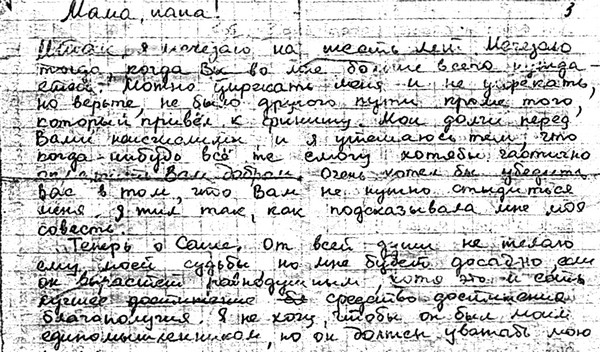 Мама, папа! 3
Итак, я исчезаю на шесть лет. Исчезаю
тогда, когда Вы во мне больше всего нуждае-
тесь. Можно упрекать меня и не упрекать,
но верьте, не было другого пути, кроме того,
который привёл к финишу. Мои долги перед
Вами неисчислимы, и я утешаюсь тем, что
когда-нибудь всё же смогу хотя бы частично
Вам добром. Очень хотел бы убедить
Вас в том, что Вам не нужно стыдиться
меня. Я жил так, как подсказывала мне моя
совесть.
Теперь о Саше. От всей души не желаю
ему моей судьбы, но мне будет досадно если
он вырастет равнодушным, хотя это и есть
лучшее достижение средство достижения
благополучия. Я не хочу, чтобы он был моим
единомышленником, но он должен уважать мою